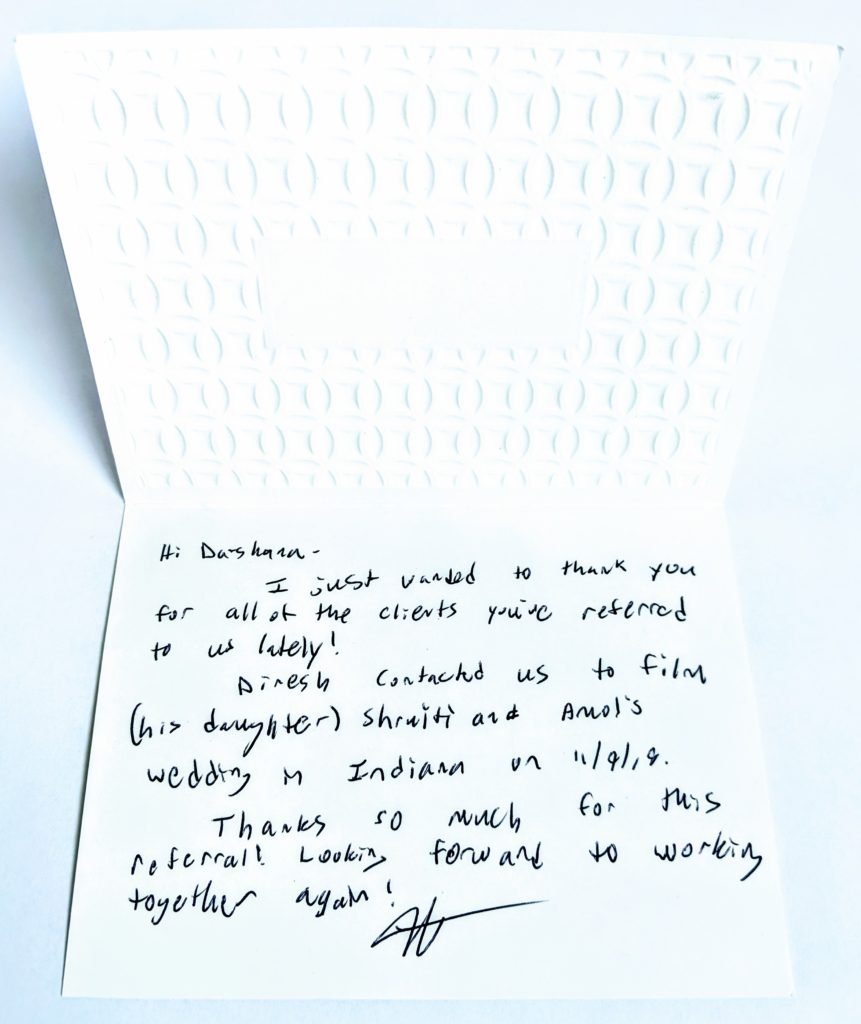 Hi Darshana-
I just wanted to thank you
for all of the clients you've referred
to us lately!
Dinesh contacted us to film
(his daughter) Shruiti and Amol's
wedding in Indiana on 11/9/18.
Thanks so much for this
referral! Looking forward to working
together again!